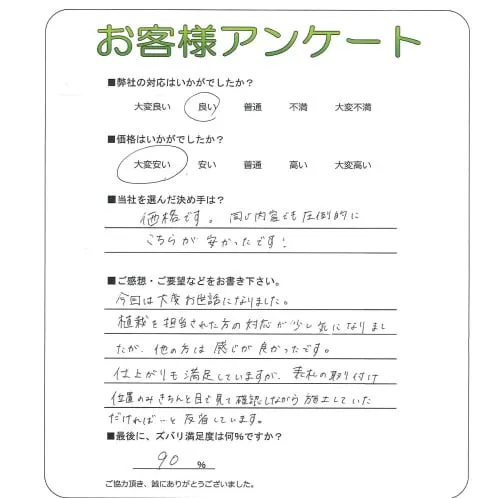 お客様アンケート
■弊社の対応はいかがでしたか？
大変良い 良い 普通 不満 大変不満
■価格はいかがでしたか？
大変安い 安い 普通 高い 大変高い
■当社を選んだ決め手は？
価格です。同じ内容でも圧倒的に
こちらが安かったです！
■ご感想・ご要望などをお書き下さい。
今回は大変お世話になりました。
植栽を担当された方の対応が少し気になりまし
たが、他の方は感じが良かったです。
仕上がりも満足していますが、表札の取り付け
位置のみきちんと目で見て確認しながら施工していた
だければ…と反省しています。
■最後に、ズバリ満足度は何%ですか？
90 %
ご協力頂き、誠にありがとうございました。